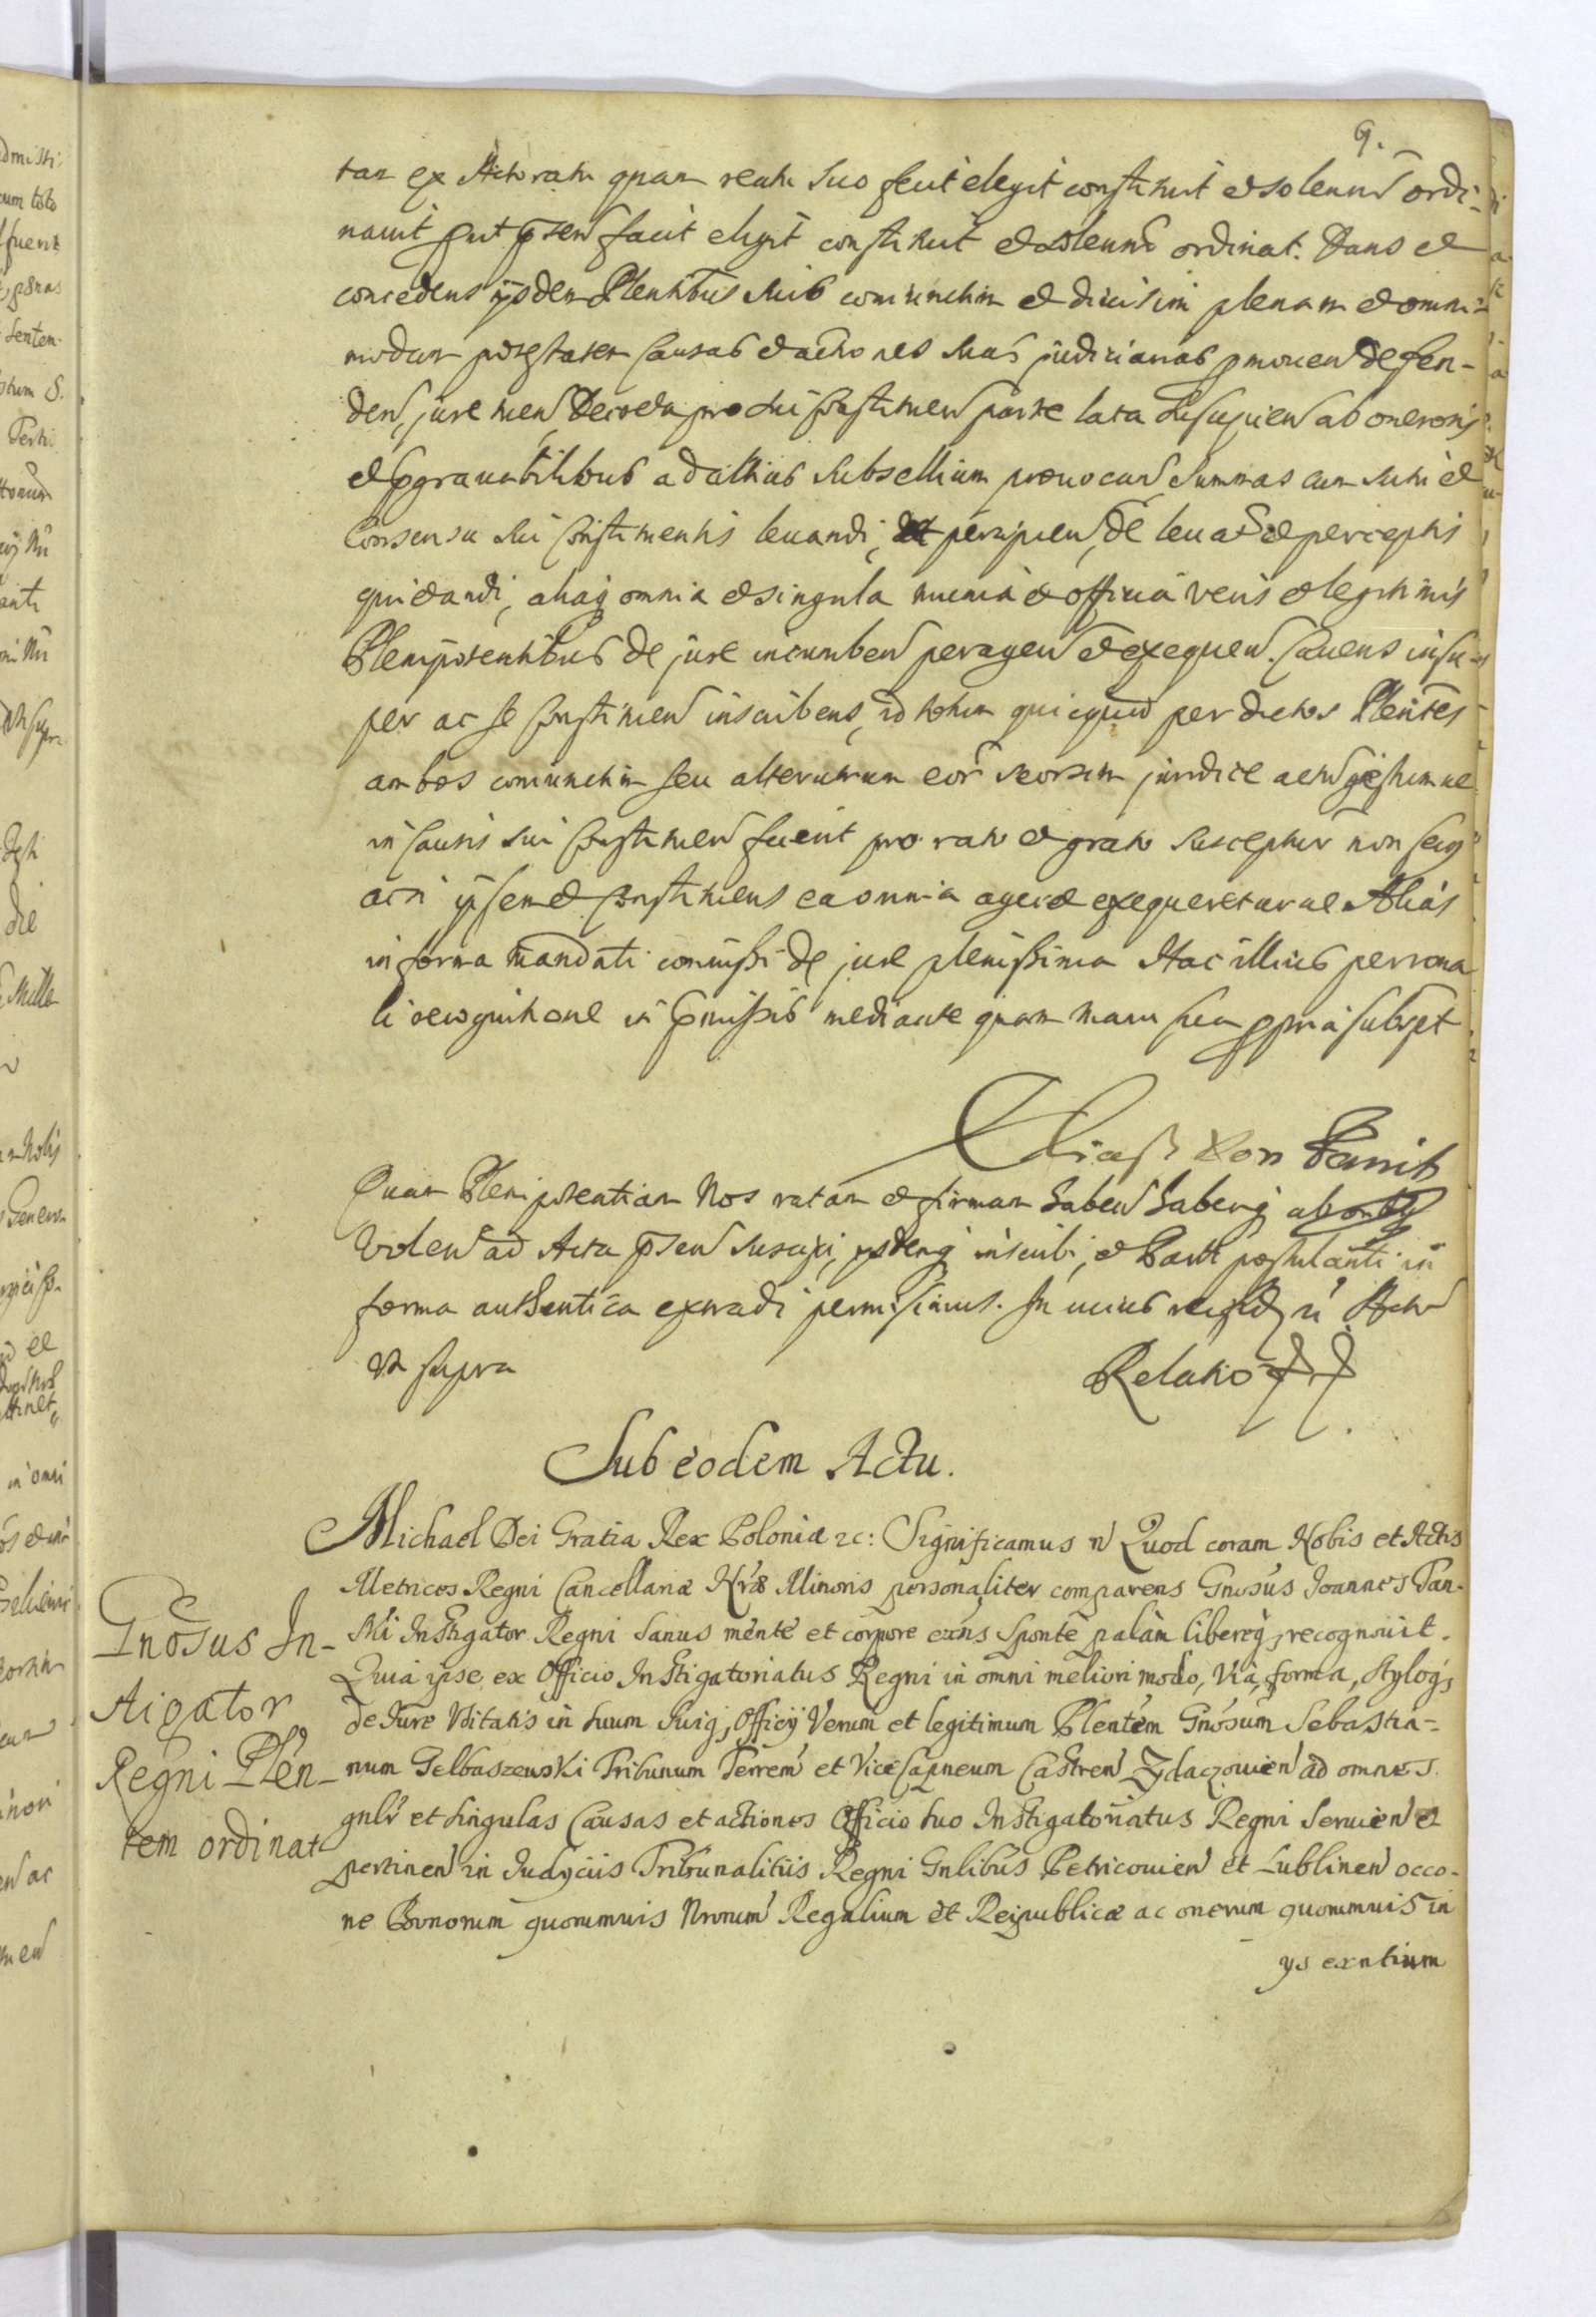 9.
tan ex Actoratu quam reatu suo fecit elegit constituit et solenn̄ ordi-
nauit prut p̄sen facit eligit constituit et solenn̄ ordinat. Dans et
concedens ijsdem Plentibus suis coniunctim et diuisim plenam et omni-
modam potestatem Causas et actiones suas judiciarias pmouen defen-
den, jure men, Decreta pro sui constituen parte lata suscipien ab onerosis
et pgrauabilibus ad altius subsellium prouocan summas cum scitu et
Consensu sui Constituentis leuandi, percipien, de leuat et perceptis
quietandi, aliaq omnia et singula munia et officia veris et legitimis
Plenipotentibus de jure incumben peragen et exequen. Cauens insu-
per ac se Constituen inscribens, id totum quicquid per dictos Plen̄tes
ambos coniunctim seu alterutrum eor seorsim juridice act gestumue
in Causis sui Constituen fuerit pro rato et grato suscepturum non secus
acsi ipsemet Constituens ea omnia ageret exequereturue Alias
in forma mandati commissi de jure plenissima Hac illius persona
li recognitione in pmissis mediante quam manu sua ppria subspt
Eliaß Von
Quam Plenipotentiam Nos ratam et firmam haben haberiq ab omnibus
volen ad Acta p̄sen suscipi, ijsdemq inscribi, et Parti postulanti in
forma authentica extradi permisimus. In cuius rei fid n Actu
vt supra
Relatio
Sub eodem Actu.
Michael Dei Gratia Rex Poloniæ &c: Significamus n Quod coram Nobis et Actis
Metrices Regni Cancellariæ Nr̄æ Minoris personaliter comparens Gnosus Joannes Tan-
ski Instigator Regni sanus mente et corpore exn̄s sponte palàm libereq, recognouit.
Quia ipse ex Officio Instigatoriatus Regni in omni meliori modo, via, forma, styloq,
de Jure Vsitatis in suum suiq, Officij Verum et legitimum Plentem Gnosum Sebastia-
num Gelbaszewski Tribunum Terrem et ViceCapneum Castren Zydaczouien ad omnes
gnlr et singulas Causas et actiones Officio suo Instigatoriatus Regni seruien et
pertinen in Judycijs Tribunalitijs Regni Gnlibus Petricouien et Lublinen occo-
ne Bonorum quorumuis Nrorum Regalium et Reipublicæ ac onerum quorumuis in
ys exntium
Gnōsus In-
stigator
Regni Plēn-
tem ordinat